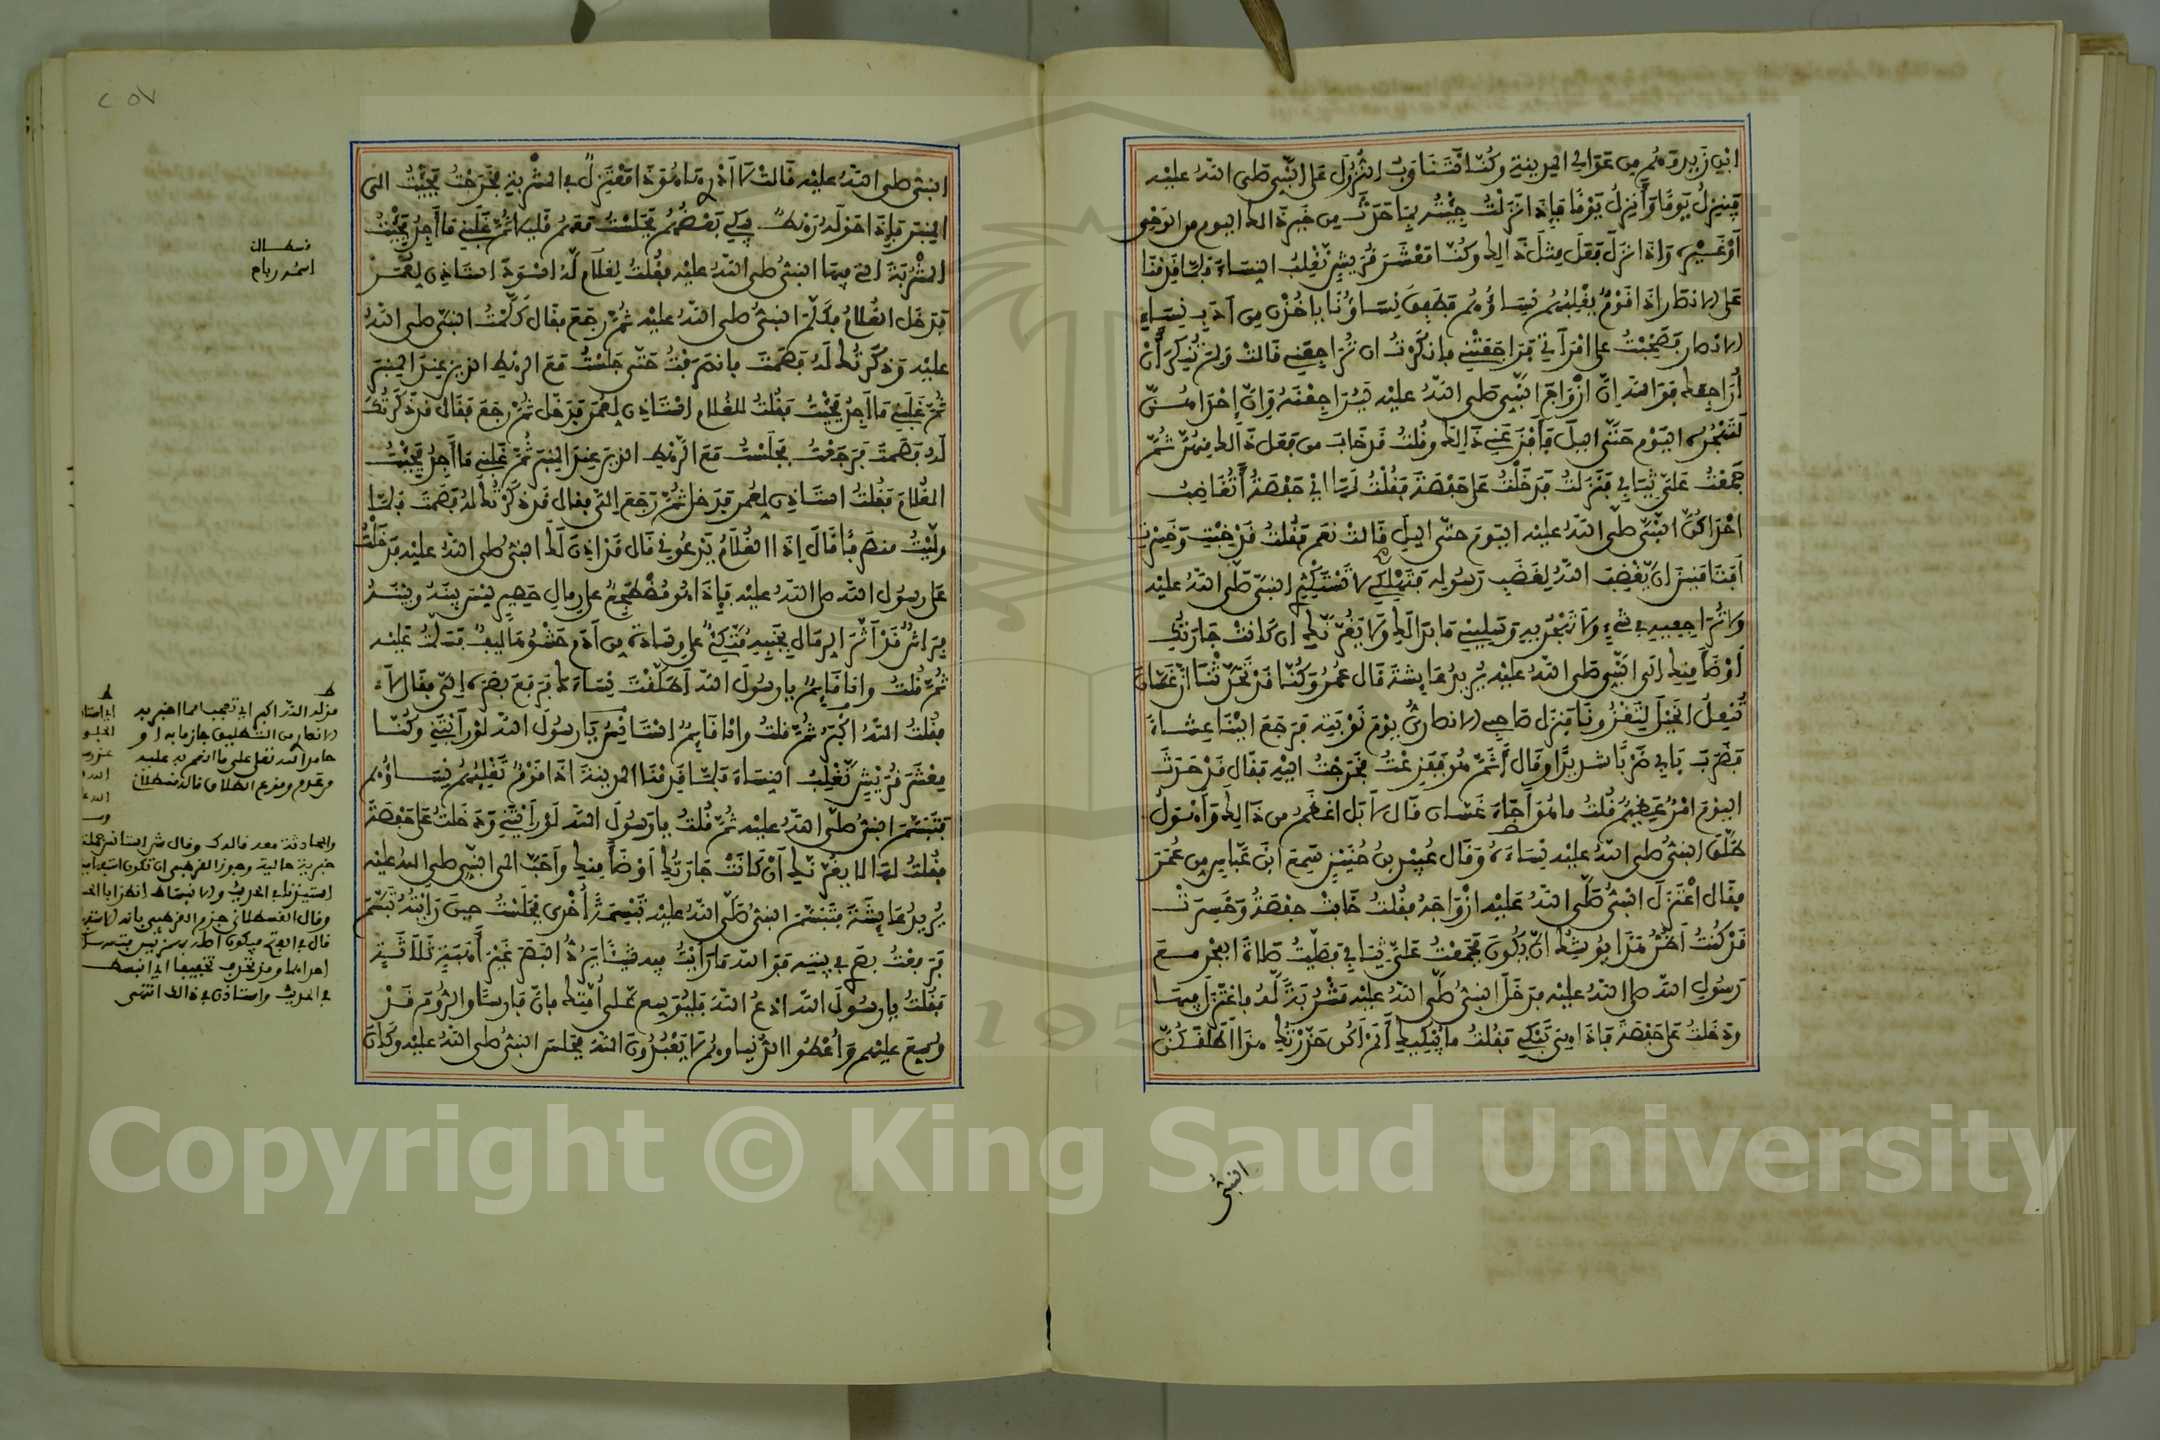 ابن زيد وهم من عوالي المدينة وكنا نتناوب النزول على النبي صلى الله عليه
فينزل يوما وأنزل يوما فإذا نزلت جئته بما حدث من خبر ذالك اليوم من الوحي
أو غيره وإذا نزل فعل مثل ذالك وكنا معشر قريش نغلب النساء فلما قدمنا
على الانصار إذا قوم تغلبهم نساؤهم فطفق نساؤنا ياخذن من أدب نساء
الانصار فصخبت على امرأتي فراجعتني فانكرت ان تراجعني قالت ولم تنكر أن
أراجعك فوالله إن أزواج النبي صلى الله عليه ليراجعنه وإن إحداهن
لتهجره اليوم حتى اليل فأفزعني ذالك وقلت قد خاب من فعل ذالك منهن ثم
جمعت علي ثيابي فنزلت فدخلت على حفصة فقلت لها اي حفصة أتغاضب
احداكن النبي صلى الله عليه اليوم حتى اليل قالت نعم فقلت قد خبت وخسرت
أفتأمنين ان يغضب الله لغضب رسوله فتهلكي لا تستكثري النبي صلى الله عليه
ولا تراجعيه في شيء ولا تهجريه وسليني ما بدا لك ولا يغرنك ان كانت جارتك
أوضأ منك إلى النبي صلى الله عليه يريد عايشة قال عمر وكنا قد تحدثنا ان غسان
تنعل الخيل لتغزونا فنزل صاحبي الانصاري يوم نوبته فرجع الينا عشاء
فضرب بابي ضربا شديدا وقال أثم هو ففزعت فخرجت اليه فقال قد حدث
اليوم امر عظيم قلت ما هو أجاء غسان قال لا بل اعظم من ذالك وأهول
طلق النبي صلى الله عليه نساءه وقال عبيد بن حنين سمع ابن عباس عن عمر
فقال اعتزل النبي صلى الله عليه ازواجه فقلت خابت حفصة وخسرت
قد كنت أظن هذا يوشك ان يكون فجمعت علي ثيابي فصليت صلاة الفجر مع
رسول الله صلى الله عليه فدخل النبي صلى الله عليه مشربة له فاعتزل فيها
ودخلت على حفصة فاذا هي تبكي فقلت ما يبكيك ألم أكن حذرتك هذا أطلقكن
النبي
٢٥٧
النبي صلى الله عليه قالت لا أدري ها هو ذا معتزل في المشربة فخرجت فجئت الى
المنبر فإذا حوله رهط يبكي بعضهم فجلست معهم قليلا ثم غلبني ما أجد فجئت
المشربة التي فيها النبي صلى الله عليه فقلت لغلام له اسود استاذن لعمر
فدخل الغلام فكلم النبي صلى الله عليه ثم رجع فقال كلمت النبي صلى الله
عليه وذكرتك له فصمت فانصرفت حتى جلست مع الرهط الذين عند المنبر
ثم غلبني ما أجد فجئت فقلت للغلام استاذن لعمر فدخل ثم رجع فقال قد ذكرتك
له فصمت فرجعت فجلست مع الرهط الذين عند المنبر ثم غلبني ما أجد فجئت
الغلام فقلت استاذن لعمر فدخل ثم رجع الي فقال قد ذكرتك له فصمت فلما
وليت منصرفا قال إذا الغلام يدعوني قال قد اذن لك النبي صلى الله عليه فدخلت
على رسول الله صلى الله عليه فإذا هو مضطجع على رمال حصير ليس بينه وبينه
فراش قد أثر الرمال بجنبه متكئ على وسادة من أدم حشوها ليف فسلمت عليه
ثم قلت وانا قايم يا رسول الله أطلقت نساءك فرفع بصره إلي فقال لا
فقلت الله أكبر ثم قلت وانا قايم استانس يا رسول الله لو رأيتني وكنا
معشر قريش نغلب النساء فلما قدمنا المدينة اذا قوم تغلبهم نساؤهم
فتبسم النبي صلى الله عليه ثم قلت يا رسول الله لو رأيتني ودخلت على حفصة
فقلت لها لا يغرنك أن كانت جارتك أوضأ منك وأحب الى النبي صلى الله عليه
يريد عايشة فتبسم النبي صلى الله عليه تبسمة أخرى فجلست حين رايته تبسم
فرفعت بصري في بيته فوالله ما رأيت فيه شيئا يرد البصر غير أهبة ثلاثة
فقلت يا رسول الله ادع الله فليوسع على أمتك فإن فارسا والروم قد
وسع عليهم وأعطوا الدنيا وهم لا يعبدون الله فجلس النبي صلى الله عليه وكان
قسطلان
اسمه رباح